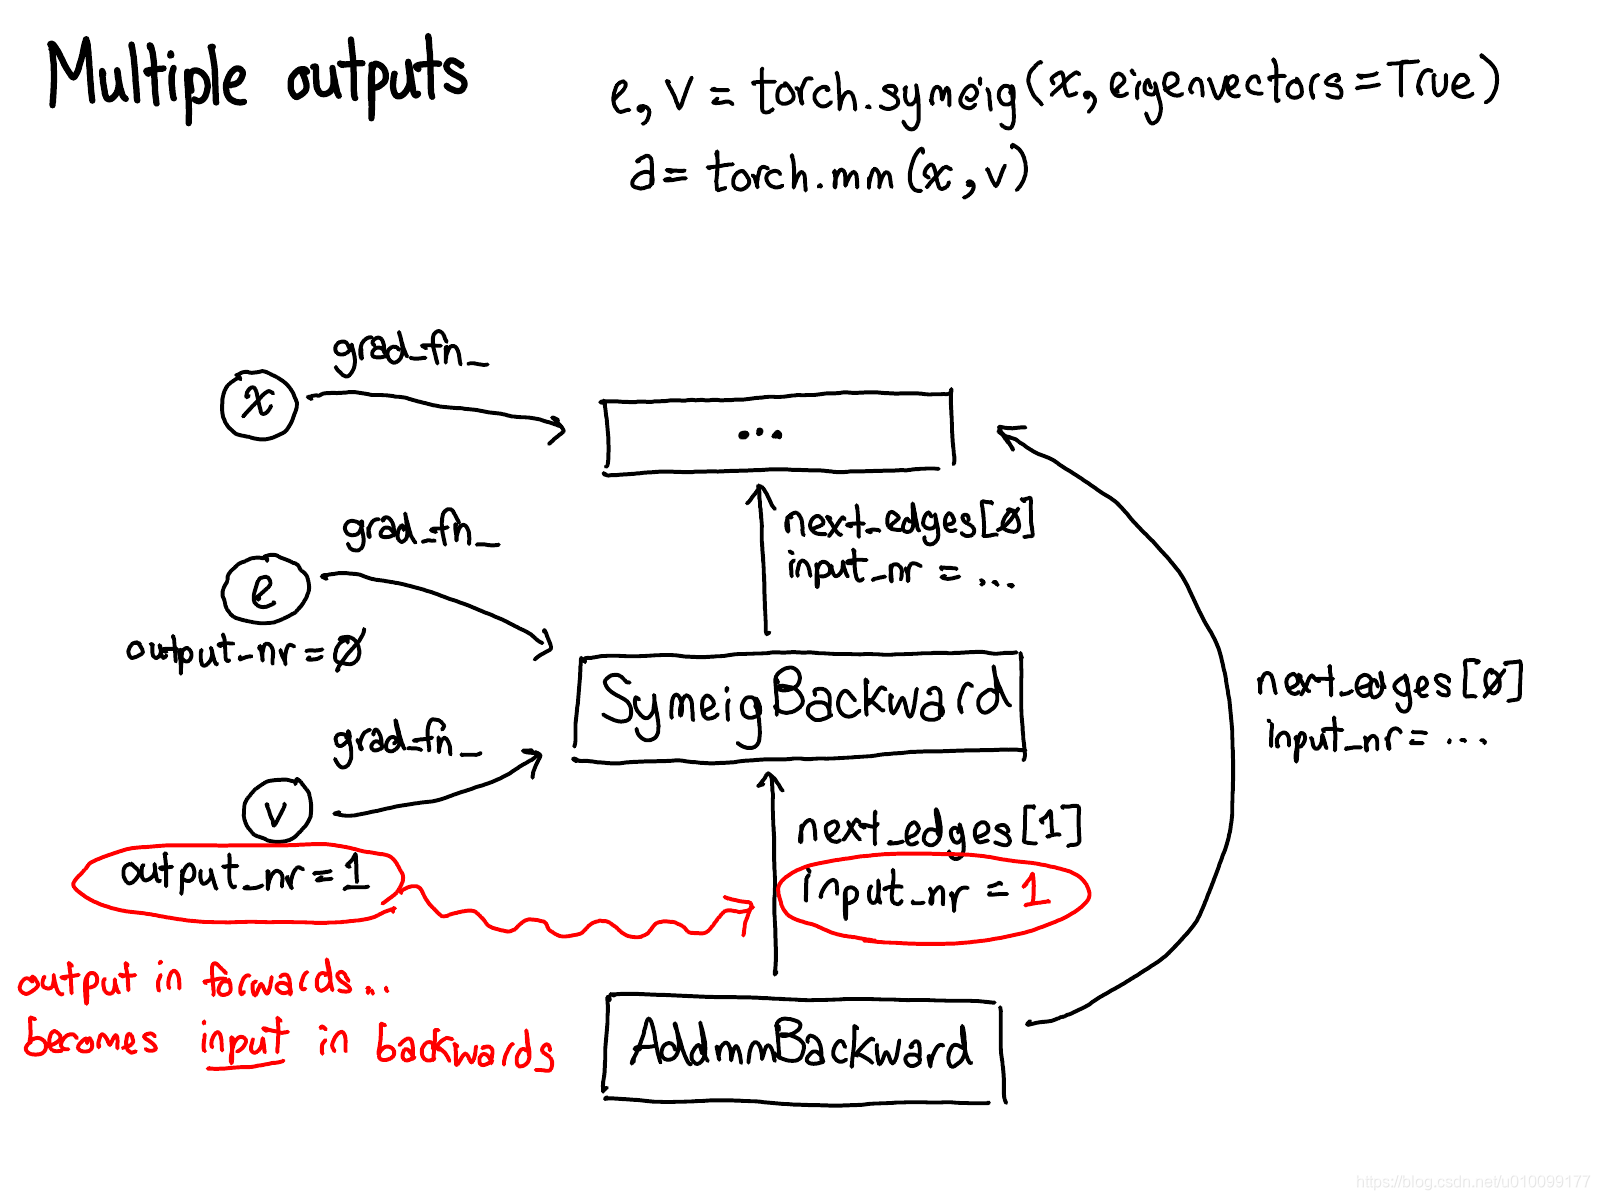 Multiple outputs
e, v = torch.symeig(x, eigenvectors=True)
a = torch.mm(x, v)
grad_fn_
x
...
grad_fn_
next_edges[0]
input_nr = ...
e
output_nr = 0
SymeigBackward
next_edges[0]
input_nr = ...
grad_fn_
v
next_edges[1]
output_nr = 1
input_nr = 1
output in forwards...
becomes input in backwards
AddmmBackward
https://blog.csdn.net/u010099177